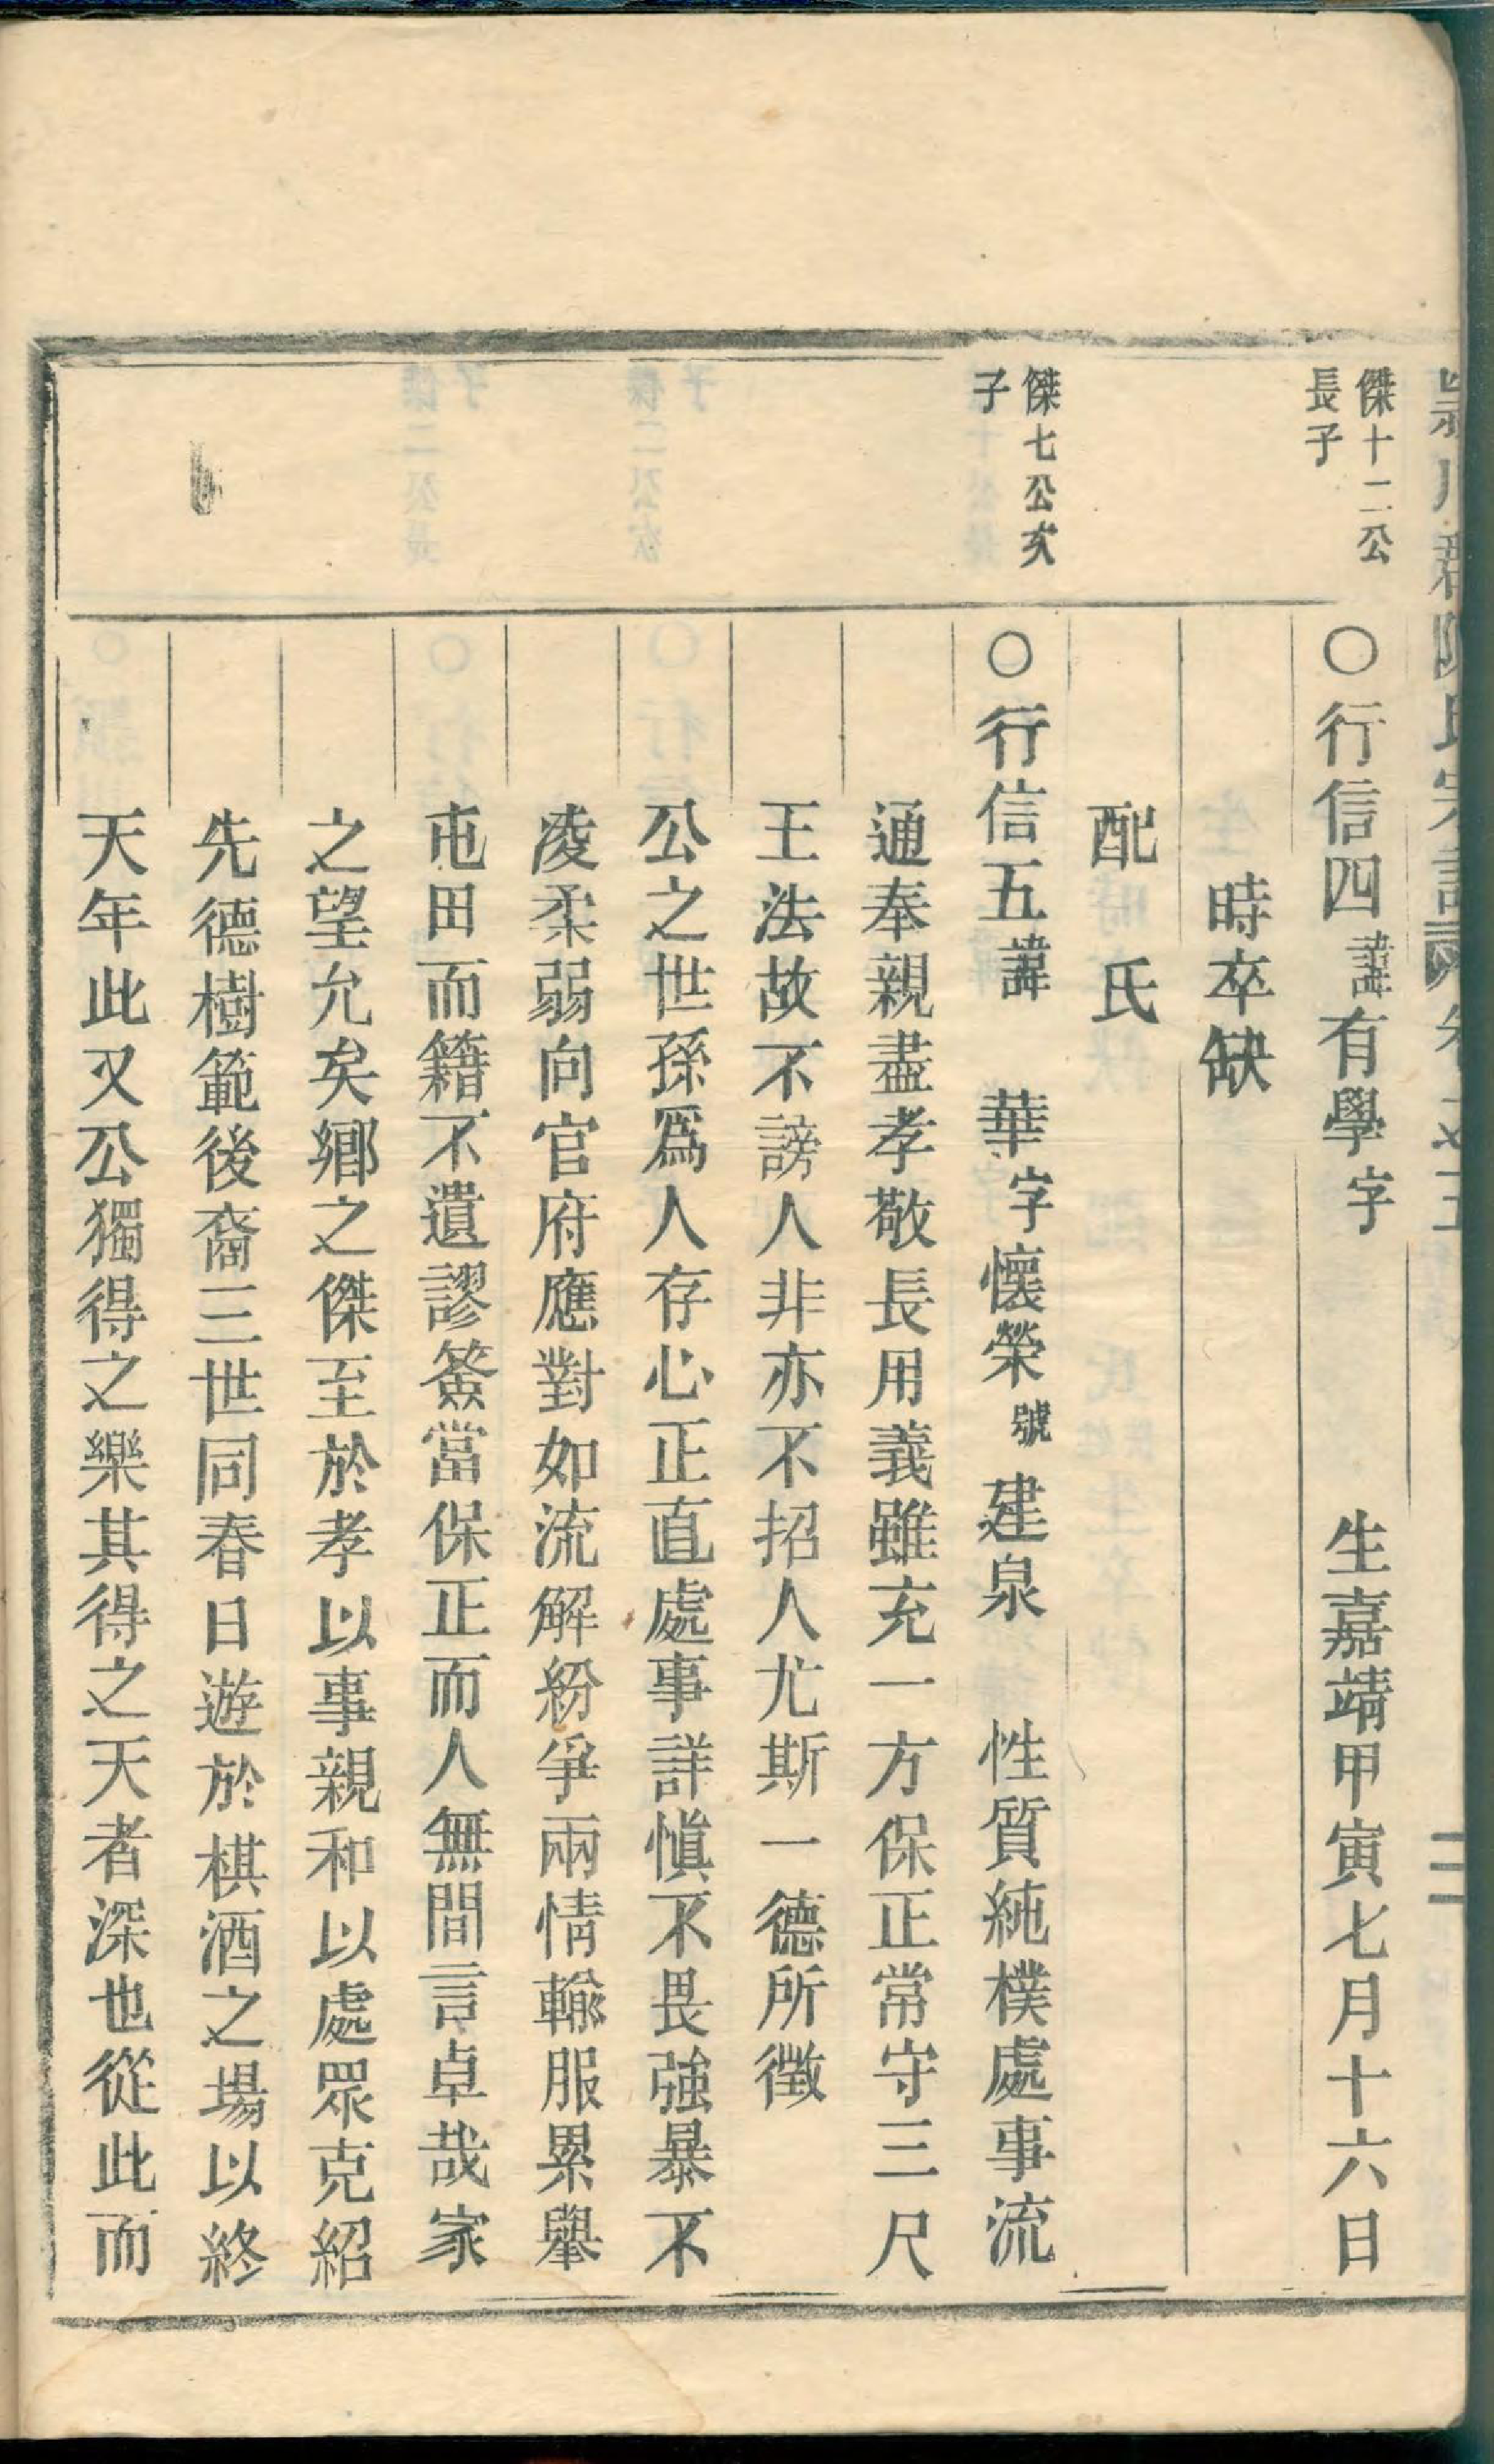 傑十二公
長子
○行信四諱有學字 生嘉靖甲寅七月十六日
時卒缺
配 氏
傑七公次
子
○行信五諱 華字懷榮號建泉 性質純樸處事流
通奉親盡孝敬長用義雖充一方保正常守三尺
王法故不謗人非亦不招人尤斯一德所徵
公之世孫爲人存心正直處事詳慎不畏強暴不
凌柔弱向官府應對如流解紛爭兩情輸服累舉
屯田而籍不遺謬簽當保正而人無間言卓哉家
之望允矣鄉之傑至於孝以事親和以處眾克紹
先德樹範後裔三世同春日遊於棋酒之場以終
天年此又公獨得之樂其得之天者深也從此而